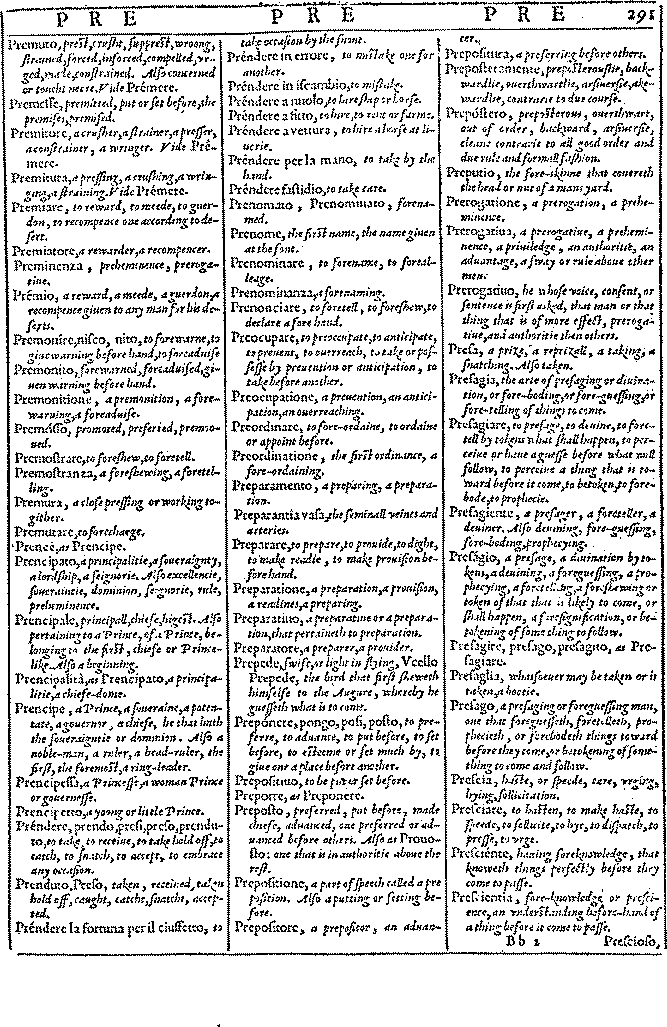 P R E P R E P R E 291
Premuto, prest, crusht, supprest, wroong,
strained, forced, inforced, compelled, vr-
ged, made, constrained. Also concerned
or toucht neere. Vide Prémere.
Premesse, premitted, put or set before, the
premises, premised.
Premitore, a crusher, a strainer, a presser,
a constrainer, a wringer. Vide Pré-
mere.
Premitura, a pressing, a crushing, a wrin-
ging, a straining. Vide Prémere.
Premiare, to reward, to meede, to guer-
don, to recompence one according to de-
sert.
Premiatore, a rewarder, a recompencer.
Preminenza, preheminence, preroga-
tiue.
Prémio, a reward, a meede, a guerdon, a
recompence giuen to any man for his de-
serts.
Premonire, nisco, nito, to forewarne, to
giue warning before hand, to foreaduise
Premonito, forewarned, foreaduised, gi-
uen warning before hand.
Premonitione, a premonition, a fore-
warning, a foreaduise.
Premósso, promoted, preferied, premoo-
ued.
Premostrare, to foreshew, to foretell.
Premostranza, a foreshewing, a foretel-
ling.
Premura, a close pressing or working to-
gither.
Premutare, to forechange.
Prence, as Prencipe.
Prencipato, a principalitie, a soueraignty,
a lordship, a seignorie. Also excellencie,
soueraintie, dominion, seignorie, rule,
preheminence.
Prencipale, principall, chiefe, highest. Also
pertaining to a Prince, of a Prince, be-
longing to the first, chiefe or Prince-
like. Also a beginning.
Prencipalità, as Prencipato, a principa-
litie, a chiefe-dome.
Prencipe, a Prince, a soueraine, a poten-
tate, a gouernor, a chiefe, he that hath
the soueraigntie or dominion. Also a
noble-man, a ruler, a head-ruler, the
first, the foremost, a ring-leader.
Prencipessa, a Princesse, a woman Prince
or gouernesse.
Prencipetto, a yoong or little Prince.
Préndere, prendo, presi, preso, prendu-
to, to take, to receiue, to take hold off, to
catch, to snatch, to accept, to embrace
any occasion.
Prenduto, Preso, taken, receiued, taken
hold off, caught, catcht, snatcht, accep-
ted.
Préndere la fortuna per il ciuffetto, to
take occasion by the front.
Préndere in errore, to mistake one for
another.
Préndere in iscambio, to mistake.
Préndere a nuolo, to hire ship or horse.
Préndere a fitto, to hire, to rent or farme.
Préndere a vettura, to hire a horse at li-
uerie.
Préndere per la mano, to take by the
hand.
Préndere fastidio, to take care.
Prenomato, Prenominato, forena-
med.
Prenome, the first name, the name giuen
at the font.
Prenominare, to forename, to foreal-
leage.
Prenominanza, a forenaming.
Prenonciare, to foretell, to foreshew, to
declare afore hand.
Preocupare, to preoccupate, to anticipate,
to preuent, to ouerreach, to take or pos-
sesse by preuention or anticipation, to
take before another.
Preocupatione, a preuention, an antici-
pation, an ouerreaching.
Preordinare, to fore-ordaine, to ordaine
or appoint before.
Preordinatione, the first ordinance, a
fore-ordaining.
Preparamento, a preparing, a prepara-
tion.
Preparantia vasa, the seminall veines and
arteries.
Preparare, to prepare, to prouide, to dight,
to make readie, to make prouision be-
fore hand.
Preparatione, a preparation, a prouision,
a readines, a preparing.
Preparatiuo, a preparatiue or a prepara-
tion, that pertaineth to preparation.
Preparatore, a preparer, a prouider.
Prepede, swift, or light in flying, Vcello
Prepede, the bird that first sheweth
himselfe to the Augure, whereby he
guesseth what is to come.
Prepónere, pongo, posi, posto, to pre-
ferre, to aduance, to put before, to set
before, to esteeme or set much by, to
giue one a place before another.
Prepositiuo, to be put or set before.
Preporre, as Preponere.
Preposto, preferred, put before, made
chiefe, aduanced, one preferred or ad-
uanced before others. Also as Prouo-
sto: one that is in authoritie aboue the
rest.
Prepositione, a part of speech called a pre
position. Also a putting or setting be-
fore.
Prepositore, a prepositor, an aduan-
cer.
Prepositura, a preferring before others.
Preposteramente, preposterouslie, back-
wardlie, ouerthwartlie, arsiuersie, ake-
wardlie, contrarie to due course.
Prepóstero, preposterous, ouerthwart,
out of order, backward, arsiuersie,
cleane contrarie to all good order and
due rule and formall fashion.
Preputio, the fore-skinne that couereth
the head or nut of a mans yard.
Prerogatione, a prerogation, a prehe-
minence.
Prerogatiua, a prerogatiue, a prehemi-
nence, a priuiledge, an authoritie, an
aduantage, a sway or rule aboue other
men.
Prerogatiuo, he whose voice, consent, or
sentence is first asked, that man or that
thing that is of more effect, preroga-
tiue, and authoritie then others.
Presa, a prize, a reprizall, a taking, a
snatching. Also taken.
Presagia, the arte of presaging or diuina-
tion, or fore-boding, or fore-guessing, or
fore-telling of things to come.
Presagiare, to presage, to deuine, to fore-
tell by tokens what shall happen, to per-
ceiue or haue a guesse before what will
follow, to perceiue a thing that is to-
ward before it come, to betoken, to fore-
bode, to prophecie.
Presagiente, a presager, a foreteller, a
deuiner. Also deuining, fore-guessing,
fore-boding, prophecying.
Preságio, a presage, a diuination by to-
kens, a deuining, a foreguessing, a pro-
phecying, a foretelling, a foreshewing or
token of that that is likely to come, or
shall happen, a foresignification, or be-
tokening of some thing to follow.
Presagire, presago, presagito, as Pre-
sagiare.
Presaglia, whatsoeuer may be taken or is
taken, a bootie.
Presago, a presaging or foreguessing man,
one that foreguesseth, foretelleth, pro-
phecieth, or forebodeth things toward
before they come, or betokening of some-
thing to come and follow.
Prescia, haste, or speede, care, vrging,
hying, sollicitation.
Presciare, to hasten, to make haste, to
speede, to sollicite, to hye, to dispatch, to
presse, to vrge.
Presciente, hauing foreknowledge, that
knoweth things perfectly before they
come to passe.
Prescientia, fore-knowledge or presci-
ence, an vnderstanding before-hand of
a thing before it come to passe.
Bb 2 Prescioso,